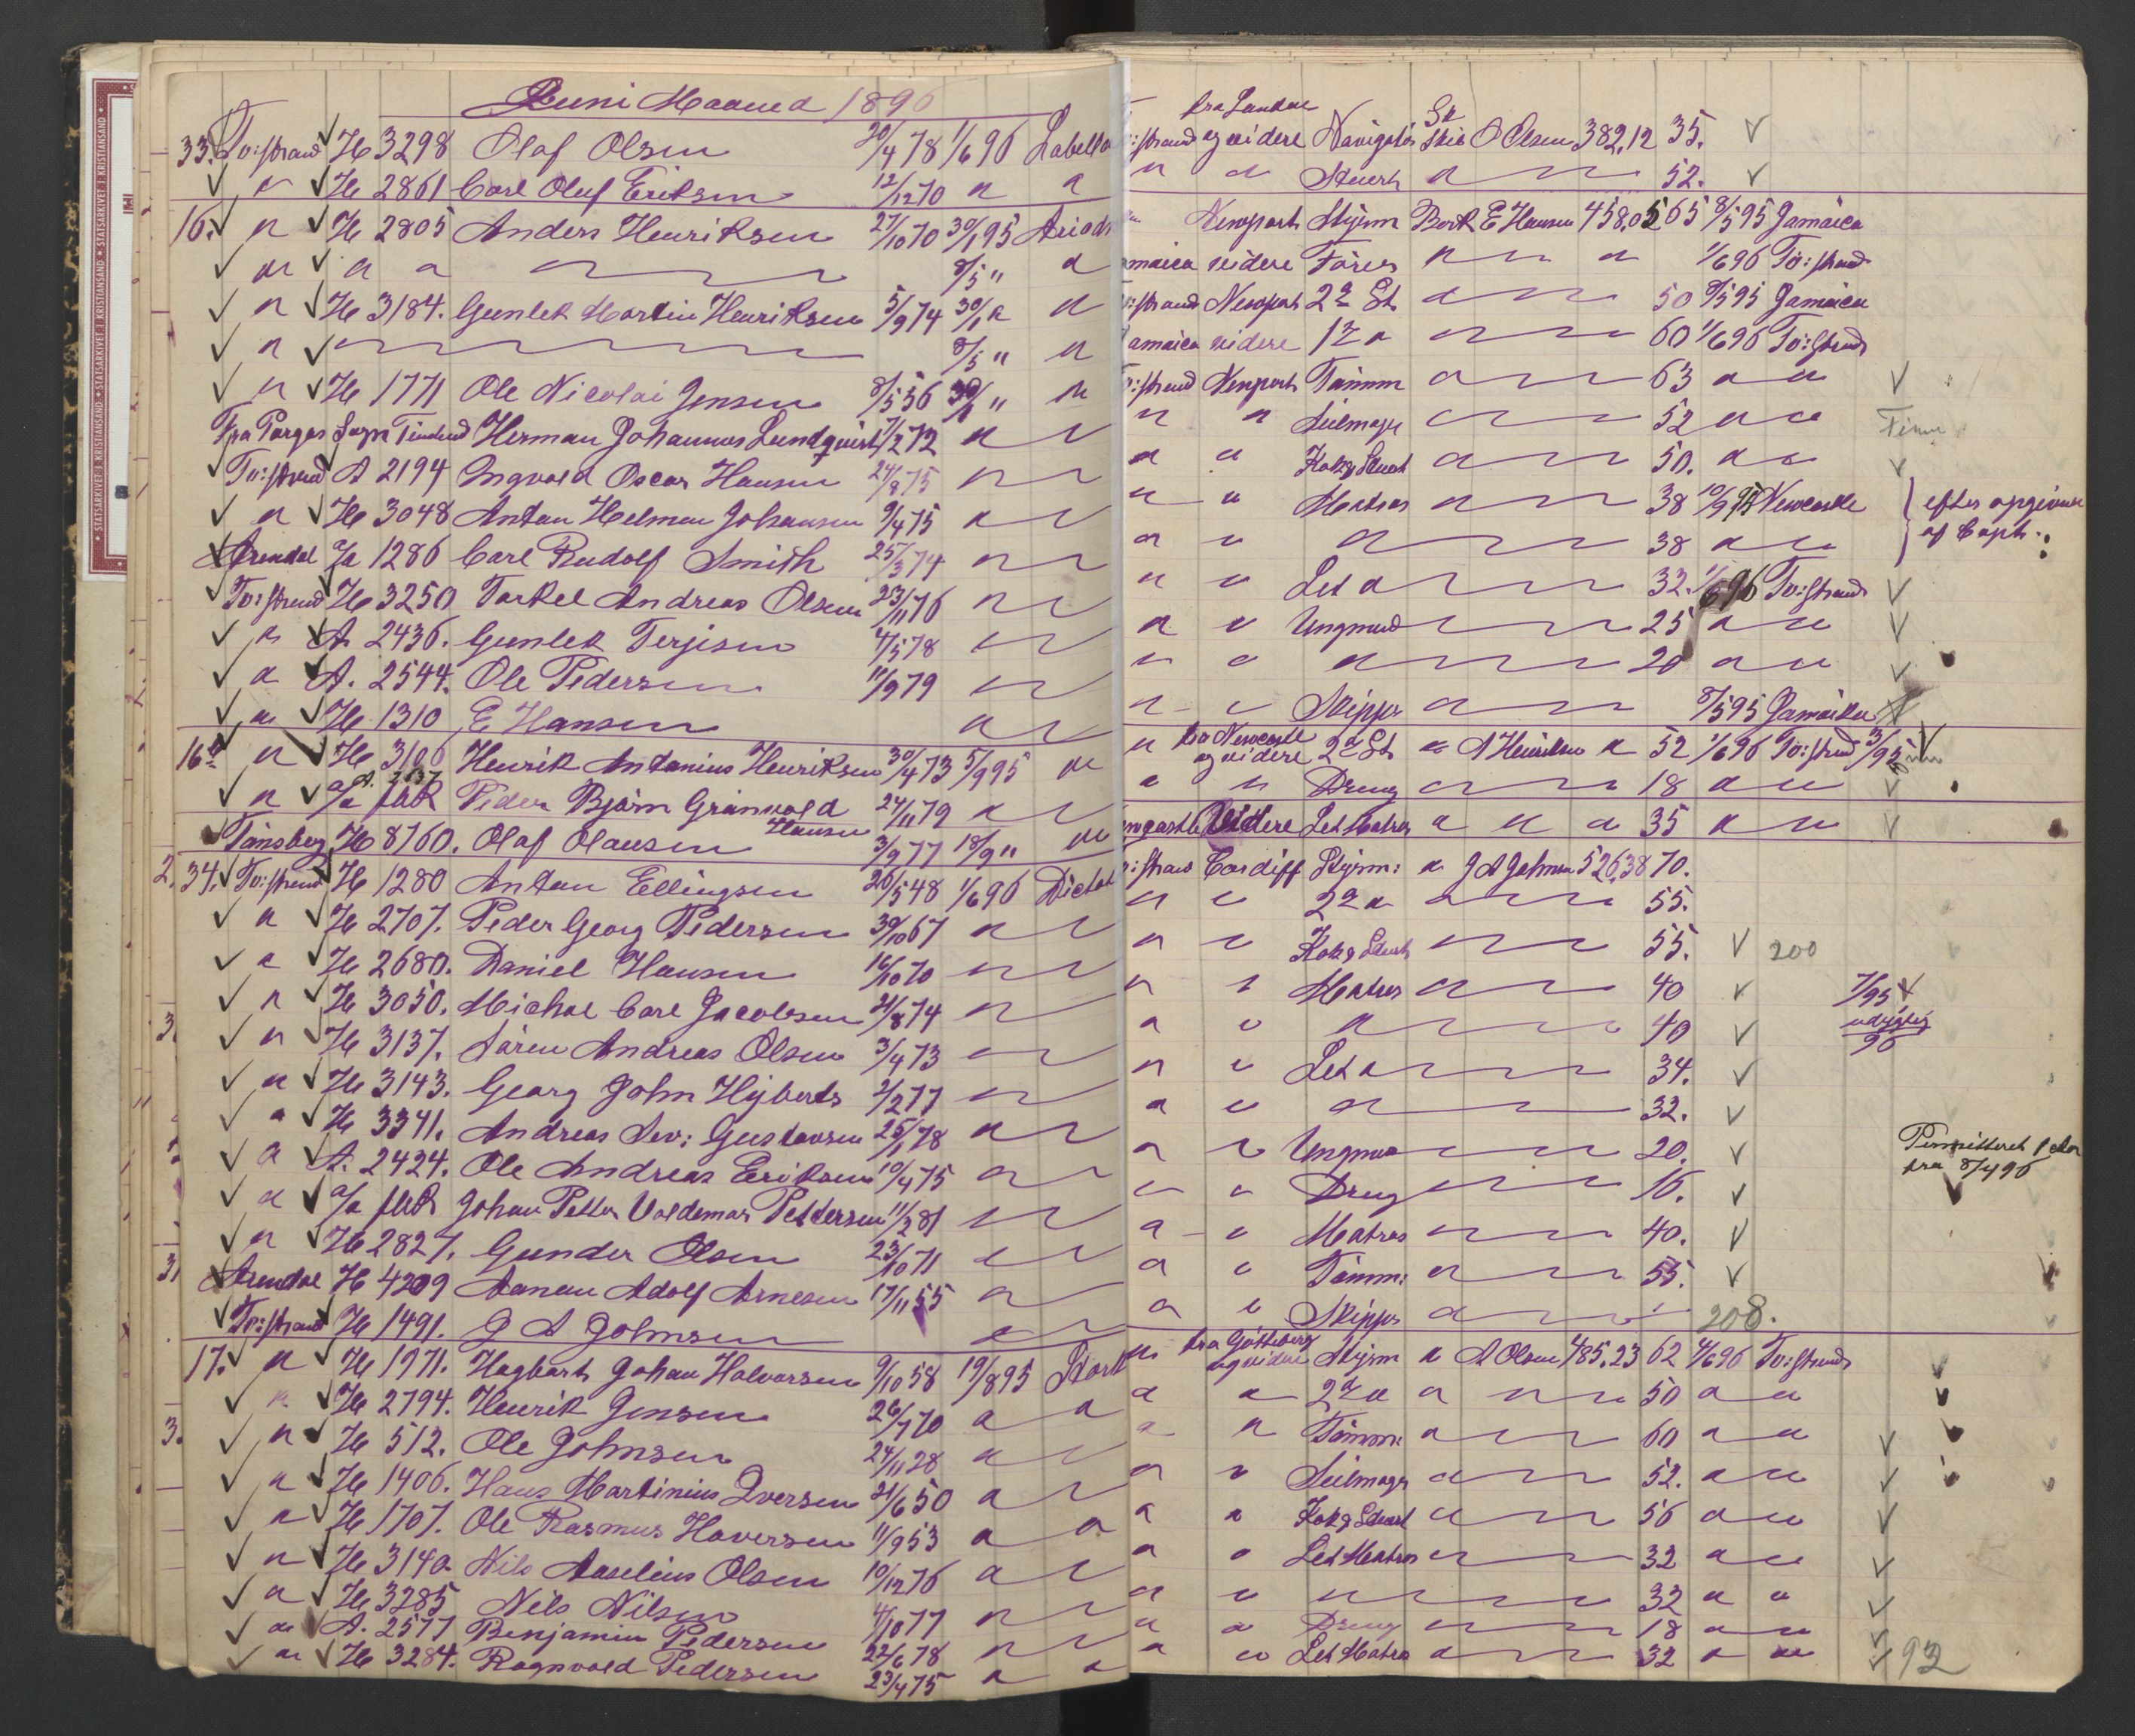 Juni Maaned 1896
33. Tv:strand H 3298 Olaf Olsen 20/4 78 1/6 96 Labella
" H 2861 Carl Oluf Eriksen 12/12 70 " "
16. " H 2805 Anders Henriksen 27/10 70 30/1 95 Ariad
" " " 8/5 " "
" H 3184. Gunlek Martin Henriksen 5/9 74 30/1 " "
" 8/5 " "
" H 1771 Ole Nicolai Jensen 8/5 56 30/1 " "
Fra Pargas Sogn Finland Herman Johannes Lundqvist 17/2 72 "
Tv:strand A 2194 Ingvald Oscar Hansen 24/8 75 "
" H 3048 Anton Helmen Johansen 9/4 75 "
Arendal a/a 1286 Carl Rudolf Smith 25/3 74 "
Tv:strand H 3250 Torkel Andreas Olsen 23/11 76 "
" A. 2436. Gunlek Terjesen 4/5 78 "
" A. 2544. Ole Pedersen 11/9 79 "
" H 1310 E Hansen "
16 a " H 3106 Henrik Antonius Henriksen 30/4 73 5/9 95 "
A. 2637
" a/a Peder Bjørn Grønvold Hansen 24/11 79 "
Tønsberg H 8760. Olaf Olausen 3/9 77 18/9 " "
34. Tv:strand H 1280 Anton Ellingsen 26/5 48 1/6 96 Dictat
" H 2707. Peder Georg Pedersen 30/10 67 "
" H 2680. Daniel Hansen 16/10 70 "
" H 3050. Michal Carl Jacobsen 21/8 74 "
" H 3137. Søren Andreas Olsen 3/4 73 "
" H 3143. Georg John Hyberts 2/2 77 "
" H 3341. Andreas Sev: Gustavsen 25/1 78 "
" A. 2424. Ole Andreas Eriksen 10/4 75 "
" a/a Johan Petter Valdemar Pettersen 11/2 81 "
" H 2827. Gunder Olsen 23/10 71 "
Arendal H 4209 Aanen Adolf Arnesen 17/11 55 "
Tv:strand H 1491. J A Johnsen "
17. " H 1971. Hagbart Johan Halvorsen 9/10 58 19/8 95 Stork
" H 2794. Henrik Jensen 26/7 70 " "
" H 512. Ole Johnsen 24/11 28 "
" H 1406. Hans Martinius Iversen 21/6 50 "
" H 1707. Ole Rasmus Haversen 11/9 53 " "
" H 3140. Nils Aaselius Olsen 10/12 76 "
" H 3285 Nils Nilsen 4/10 77 "
" A. 2577 Benjamin Pedersen 22/6 78 "
" H 3284. Ragnvald Pedersen 23/4 75 " "
:strand fra London og videre Navigatør Sk O Olsen 382,12 35.
" " Stuert " 52.
Newport Styrm Bark E Hansen 458,05 65 8/5 95 Jamaica
maica videre Fører " " 1/6 96 Tv:strand
:strand Newport 2d St " 50 8/5 95 Jamaica
amaica videre 1ste " " 60 1/6 96 Tv:strand
:strand Newport Tømm " 63 " "
" " Seilmager " 52 " " Finne
" " Kok & Stuert " 50. " "
" " Matros " 38 10/9 95 Newcastle } efter opgivende
" " " 38 " " af Capt.
" " Let " 32. 1/6 96 Tv:strand
" " Ungmand 25 " "
" " " 20 " "
" " Skipper " 8/5 95 Jamaika
" fra Newcastle og videre 2d St " A Henriksen " 52 1/6 96 Tv:strand 3/95
" " Dreng 18 " "
ewcastle Videre Let Matros " " " 35 " "
:strand Cardiff Styrm: " J A Johnsen 526,38 70.
" " 2d " " 55.
" " Kok & Stuert " 55. 200
" " Matros " 40 7/95
" " " 40 udygtig 96
" " Let " 34.
" " " 32.
" " Ungmand 20. Permitteret 1 aar
" " Dreng 16. fra 8/4 96
" " Matros 40.
" " Tømm: " 55.
" " Skipper " 208.
" fra Gøtteborg og videre Styrm " A Olsen 485,23 62 4/6 96 Tv:strand
" " 2d " " 50 " "
" " Tømm: " 60 " "
" " Seilmager " 52. " "
" " Kok & Stuert " 56 " "
" " Let Matros 32 " "
" " " 32 " "
" " Dreng 18 " "
" " Let Matros " 32 " " 92
STATSARKIVET I KRISTIANSAND